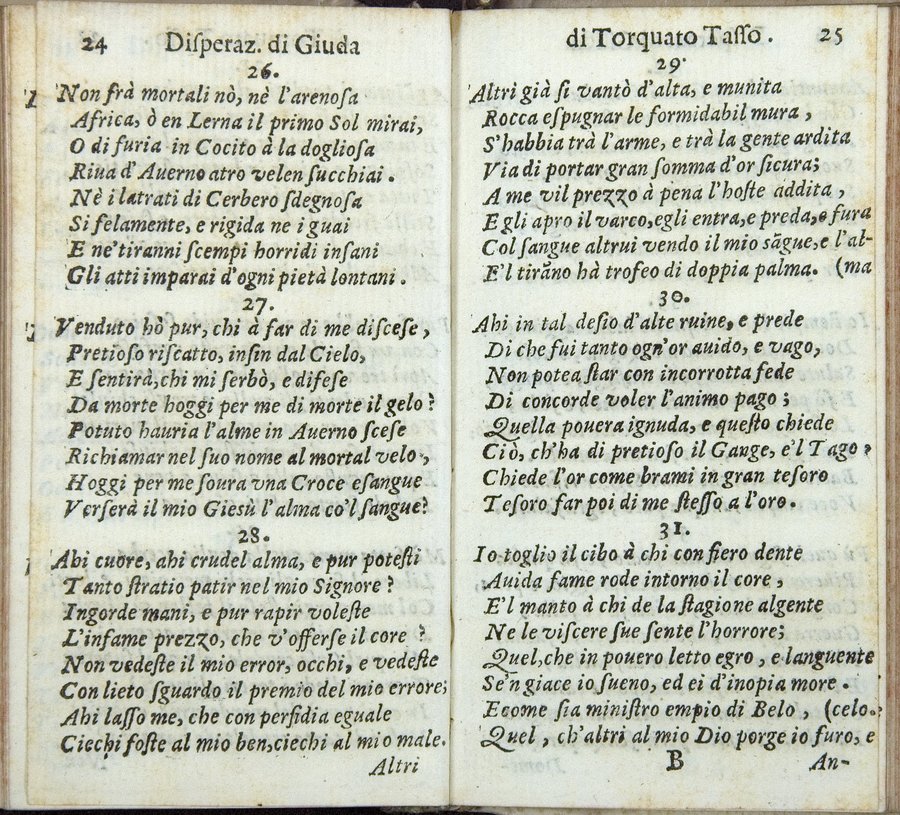 24 Disperaz. di Giuda
26.
Non frà mortali nò, nè l'arenosa
Africa, ò en Lerna il primo Sol mirai,
O di furia in Cocito à la dogliosa
Riua d'Auerno atro velen succhiai.
Nè i latrati di Cerbero sdegnosa
Si felamente, e rigida ne i guai
E ne' tiranni scempi horridi insani
Gli atti imparai d'ogni pietà lontani.
27.
Venduto hò pur, chi à far di me discese,
Pretioso riscatto, insin dal Cielo,
E sentirà, chi mi serbò, e difese
Da morte hoggi per me di morte il gelo?
Potuto hauria l'alme in Auerno scese
Richiamar nel suo nome al mortal velo,
Hoggi per me soura vna Croce esangue
Verserà il mio Giesù l'alma co'l sangue?
28.
Ahi cuore, ahi crudel alma, e pur potesti
Tanto stratio patir nel mio Signore?
Ingorde mani, e pur rapir voleste
L'infame prezzo, che v'offerse il core?
Non vedeste il mio error, occhi, e vedeste
Con lieto sguardo il premio del mio errore;
Ahi lasso me, che con perfidia eguale
Ciechi foste al mio ben, ciechi al mio male.
Altri
di Torquato Tasso. 25
29.
Altri già si vantò d'alta, e munita
Rocca espugnar le formidabil mura,
S'habbia trà l'arme, e trà la gente ardita
Via di portar gran somma d'or sicura;
A me vil prezzo à pena l'hoste addita,
E gli apro il varco, egli entra, e preda, e fura
Col sangue altrui vendo il mio sãgue, e l'al-
E'l tirãno hà trofeo di doppia palma. (ma
30.
Ahi in tal desio d'alte ruine, e prede
Di che fui tanto ogn'or auido, e vago,
Non potea star con incorrotta fede
Di concorde voler l'animo pago;
Quella pouera ignuda, e questo chiede
Ciò, ch'ha di pretioso il Gange, e'l Tago,
Chiede l'or come brami in gran tesoro
Tesoro far poi di me stesso a l'oro.
31.
Io toglio il cibo à chi con fiero dente
Auida fame rode intorno il core,
E'l manto à chi de la stagione algente
Ne le viscere sue sente l'horrore;
Quel, che in pouero letto egro, e languente
Se'n giace io sueno, ed ei d'inopia more.
E come sia ministro empio di Belo, (celo.
Quel, ch'altri al mio Dio porge io furo, e
B An-